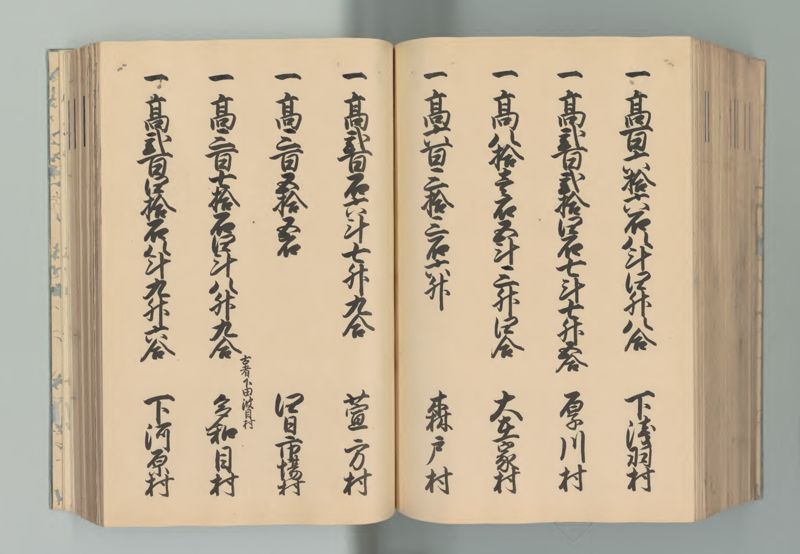 一 高百六拾六石八斗四升八合 下浅羽村
一 高弐百弐拾四石七斗七升五合 厚川村
一 高八拾壱石五斗三升四合 大塚村
一 高六百三拾三石六升 森戸村
一 高弐百石六斗七升九合 萱方村
一 高三百五拾五石 四日市場村
古者下田波目村
一 高三百七拾石四斗八升九合 多和目村
一 高弐百四拾石八斗九升六合 下河原村